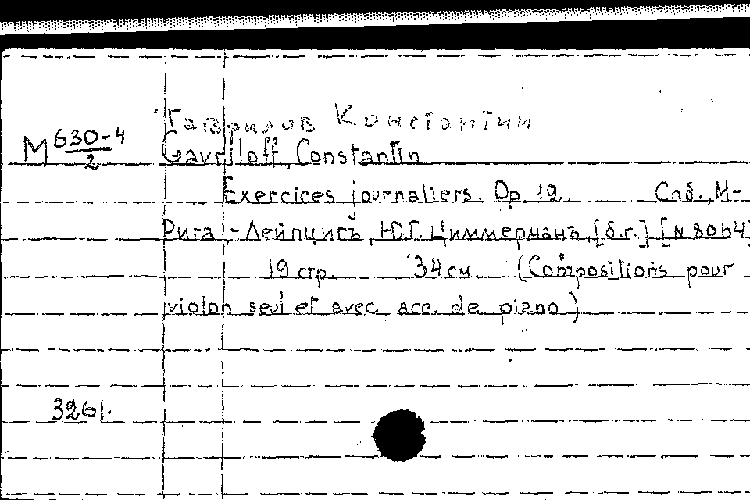 Гаврилов Константин
М 630-4/2 Gavriloff, Constantin
Exercices journaliers. Op. 12. Спб., М-
Рига-Лейпцигъ, Ю.Г. Циммерманъ, [б.г.] [N 8064]
19 стр. 34 см. (Compositions pour
violon seul et avec acc. de piano)
326 1.